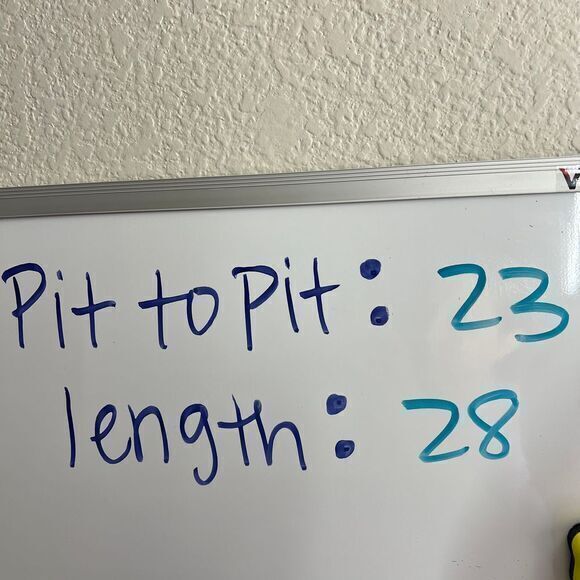 Pit to Pit: 23
length: 28